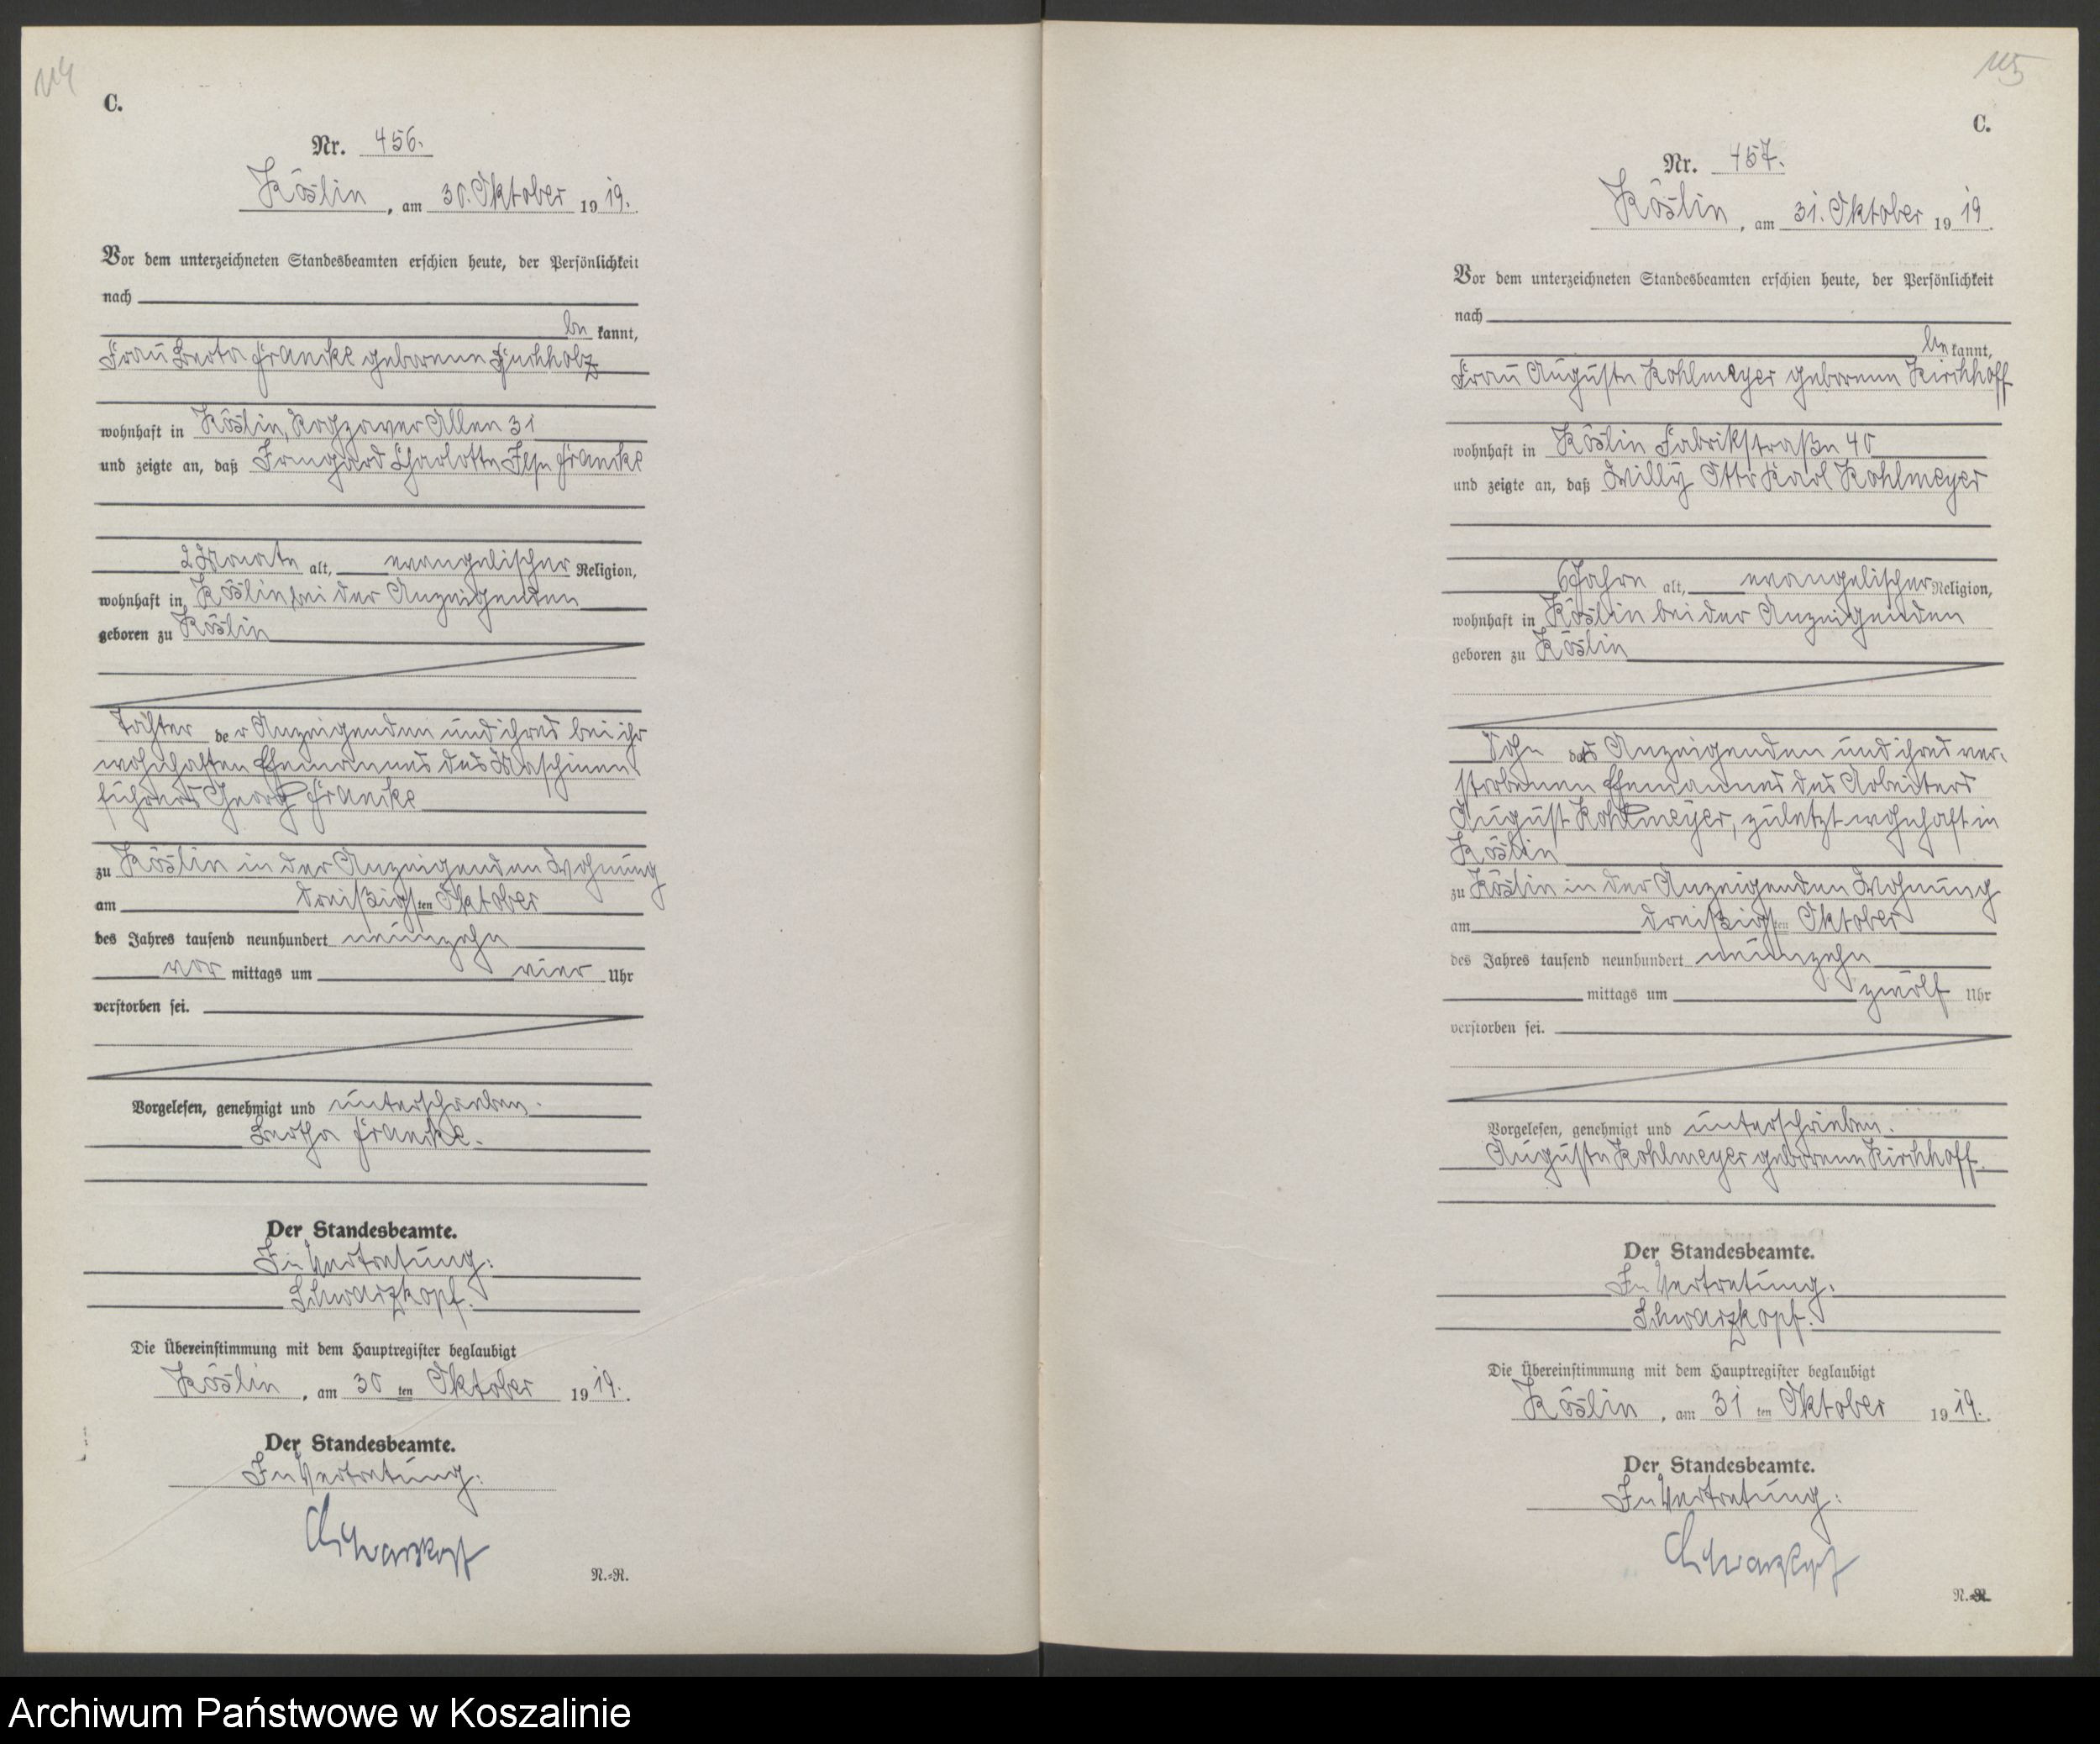 114
C.
Nr. 456.
Köslin, am 30. Oktober 1919.
Vor dem unterzeichneten Standesbeamten erschien heute, der Persönlichkeit
nach
be kannt,
Frau Berta Francke geborene
wohnhaft in Köslin, Rogzower Allee 31
und zeigte an, daß Irmgard Charlotte Ilse Francke
2 Monate alt, evangelischer Religion,
wohnhaft in Köslin, bei der Anzeigenden
geboren zu Köslin
Tochter der Anzeigenden und ihres bei ihr
wohnhaften Ehemannes des Maschinen-
führers Georg Francke
zu Köslin in der Anzeigenden Wohnung
am dreißigsten Oktober
des Jahres tausend neunhundert neunzehn
vor mittags um vier Uhr
verstorben sei.
Vorgelesen, genehmigt und unterschrieben.
Bertha Francke.
Der Standesbeamte.
In Vertretung:
Schwarzkopf.
Die Übereinstimmung mit dem Hauptregister beglaubigt
Köslin, am 30 ten Oktober 1919.
Der Standesbeamte.
In Vertretung:
Schwarzkopf
N.=R.
115
C.
Nr. 457.
Köslin, am 31. Oktober 1919.
Vor dem unterzeichneten Standesbeamten erschien heute, der Persönlichkeit
nach
be kannt,
Frau Auguste Kohlmeyer geborene Kirchhoff
wohnhaft in Köslin Fabrikstraße 40
und zeigte an, daß Willy Otto Karl Kohlmeyer
6 Jahre alt, evangelischer Religion,
wohnhaft in Köslin bei der Anzeigenden
geboren zu Köslin
Sohn der Anzeigenden und ihres ver-
storbenen Ehemannes des Arbeiters
August Kohlmeyer, zuletzt wohnhaft in
Köslin
zu Köslin in der Anzeigenden Wohnung
am dreißigsten Oktober
des Jahres tausend neunhundert neunzehn
mittags um zwölf Uhr
verstorben sei.
Vorgelesen, genehmigt und unterschrieben.
Auguste Kohlmeyer geborene Kirchhoff.
Der Standesbeamte.
In Vertretung:
Schwarzkopf.
Die Übereinstimmung mit dem Hauptregister beglaubigt
Köslin, am 31 ten Oktober 1919.
Der Standesbeamte.
In Vertretung:
Schwarzkopf
N.=R.
Archiwum Państwowe w Koszalinie